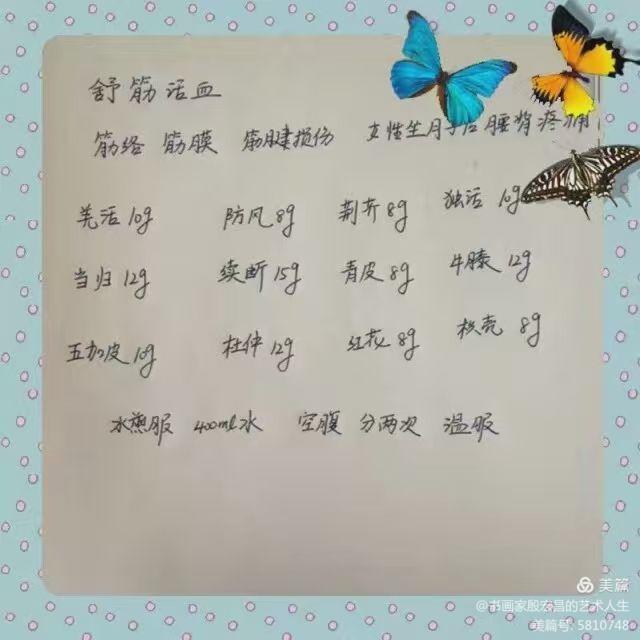 舒筋活血
筋络 筋膜 筋腱损伤 女性坐月子后腰背疼痛
羌活10g 防风8g 荆芥8g 独活10g
当归12g 续断15g 青皮8g 牛膝12g
五加皮10g 杜仲12g 红花8g 枳壳8g
水煎服 400ml水 空腹 分两次 温服
美篇
@书画家殷宏昌的艺术人生
美篇号: 5810748